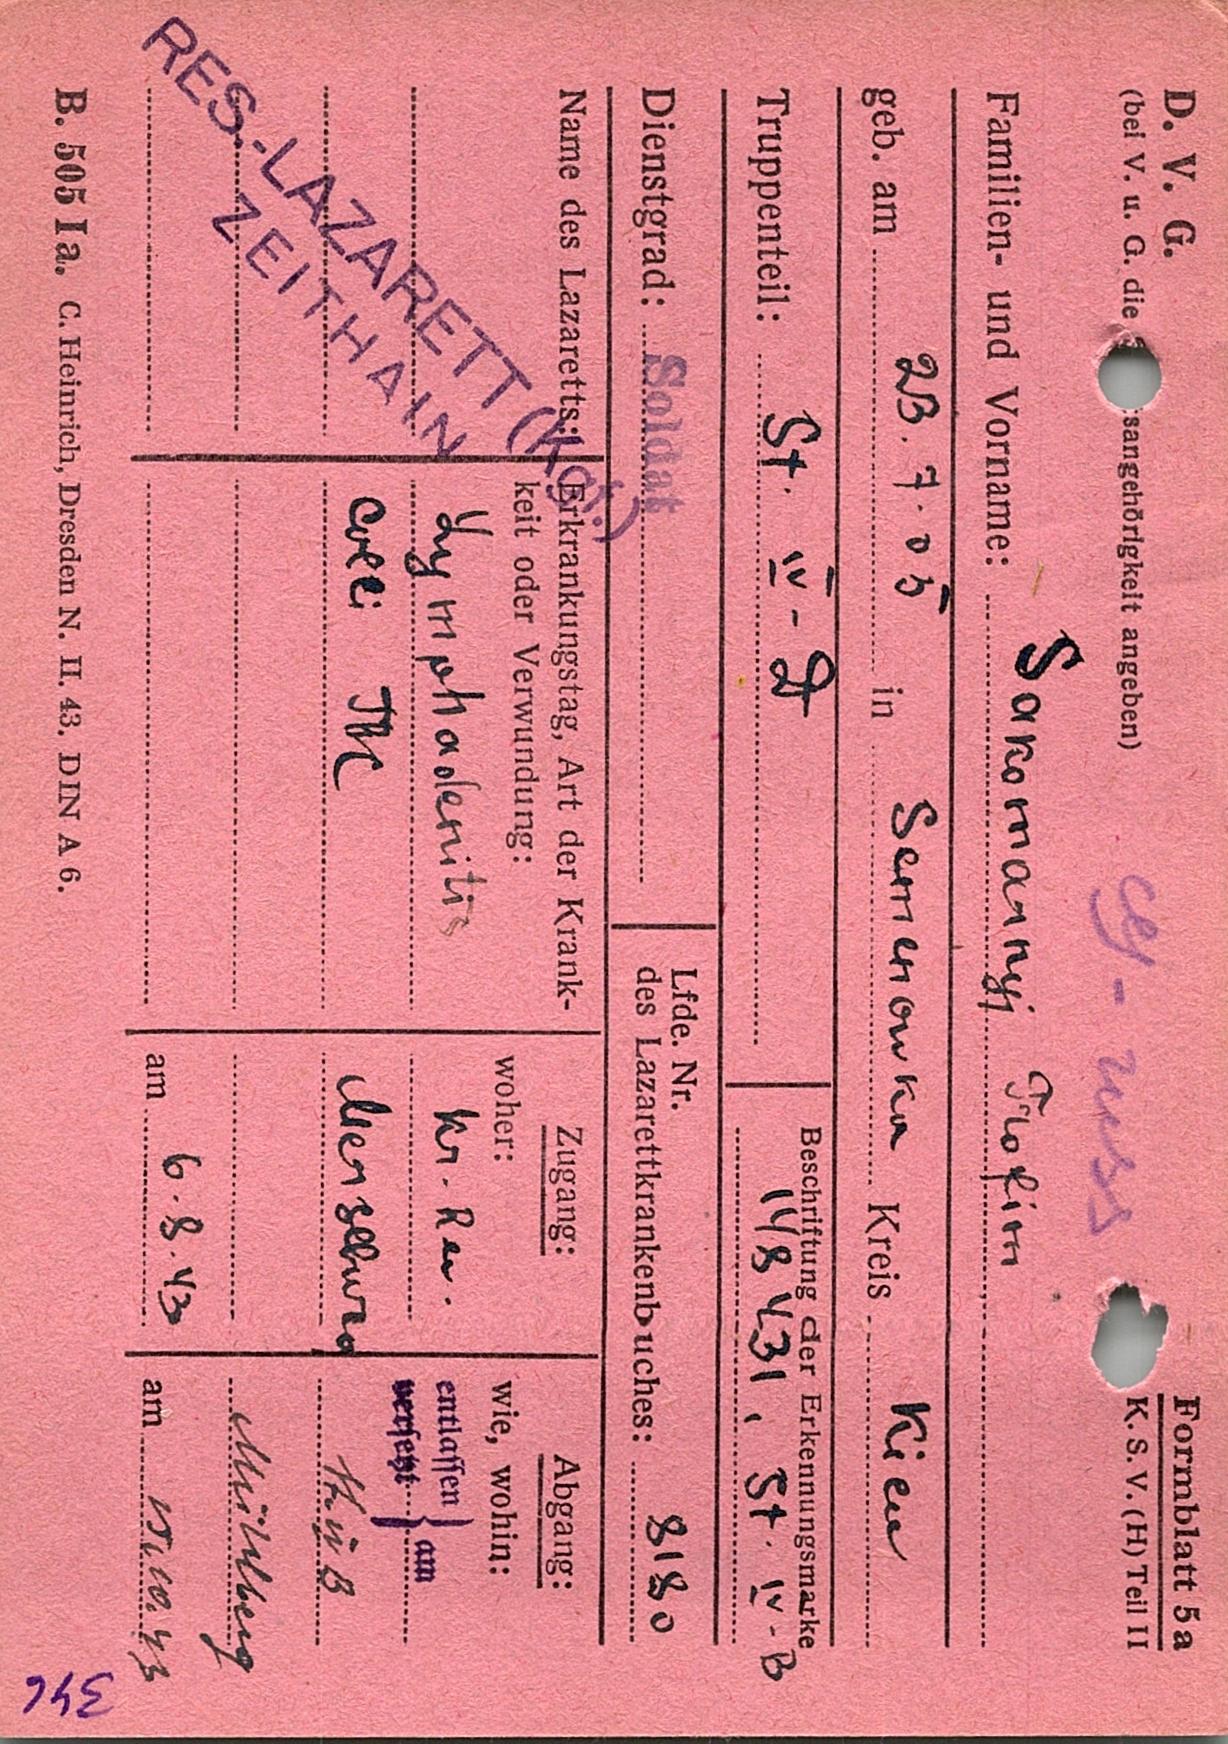 D. V. G.
Formblatt 5a
(bei V. u. G. die sangehörigkeit angeben)
K. S. V. (H) Teil II
russ
Familien- und Vorname: Sakomannyj Trofim
geb. am 23. 7. 05 in Semenowka Kreis Kiew
Truppenteil: St. IV-D
Beschriftung der Erkennungsmarke
148431, St. IV-B
Dienstgrad: Soldat
Lfde. Nr.
des Lazarettkrankenbuches: 8180
Name des Lazaretts:
RES.-LAZARETT (Kgf.)
ZEITHAIN
Erkrankungstag, Art der Krank-
keit oder Verwundung:
Lymphadenitis
colli Tbc
Zugang:
woher:
Kr. Rev.
Merseburg
am 6.8.43
Abgang:
wie, wohin:
entlassen
versetzt
am
Mühlberg
am 10.43
B. 505 Ia. C. Heinrich, Dresden N. II. 43. DIN A 6.
346